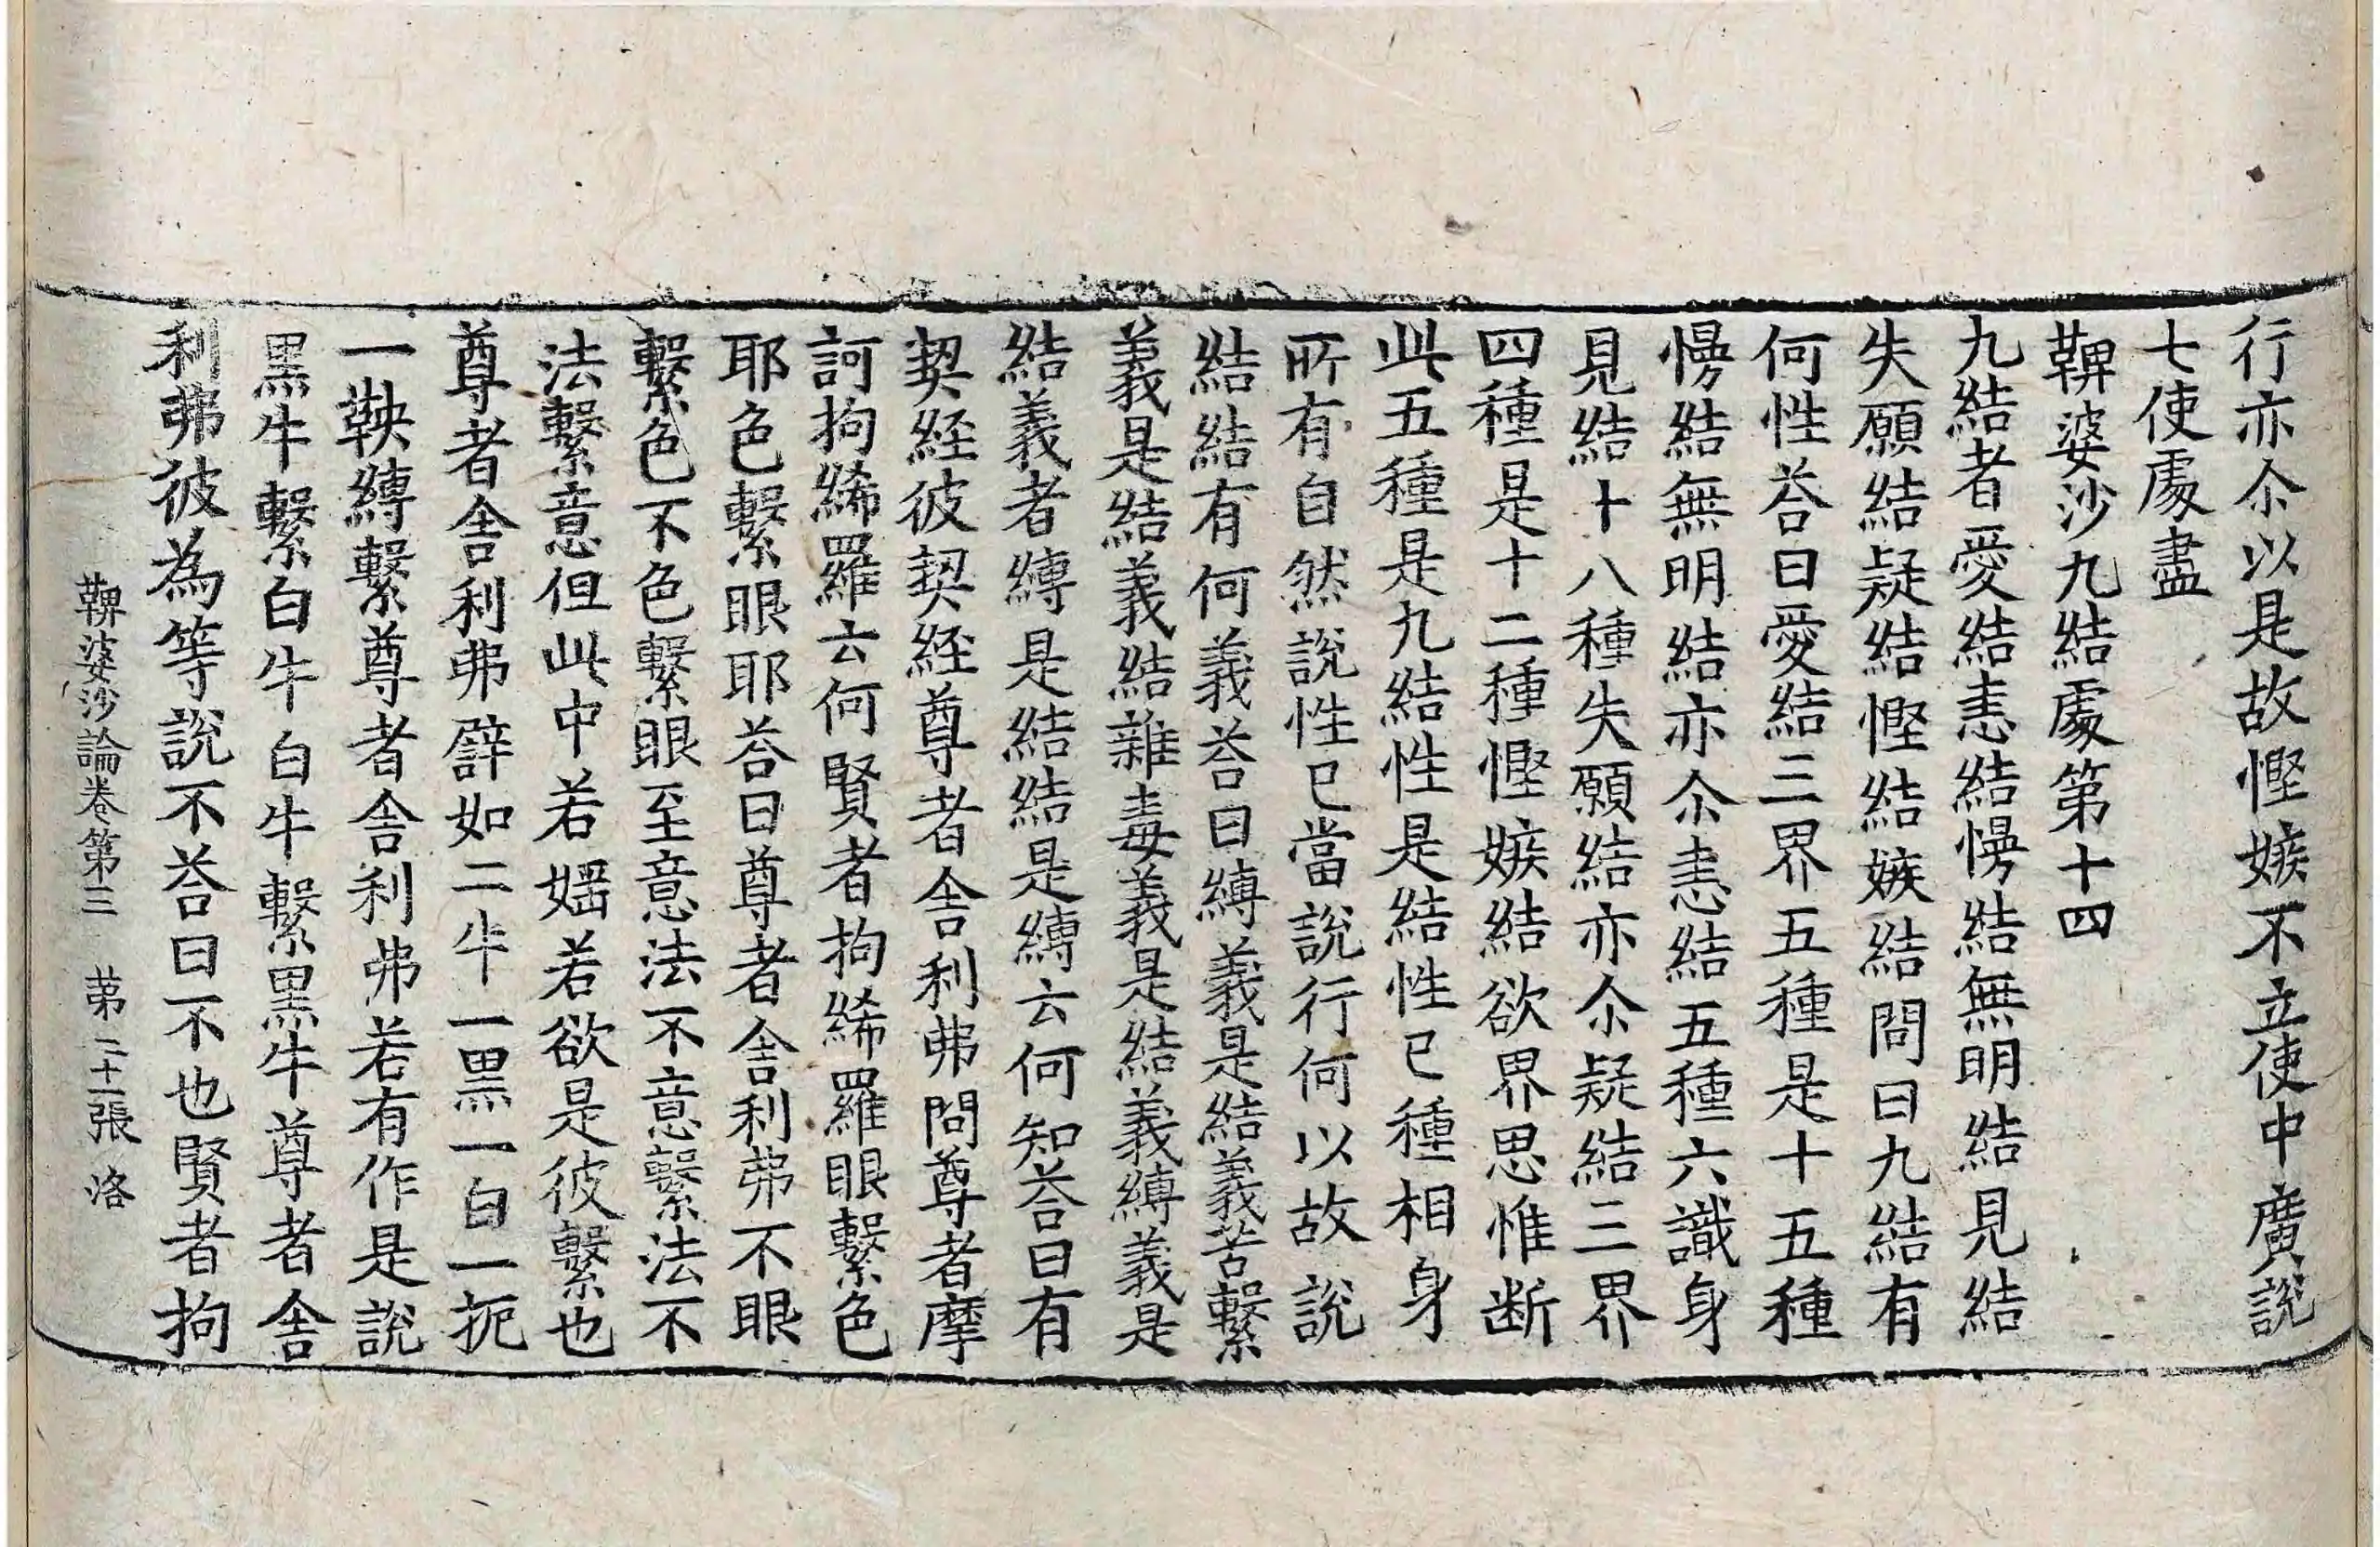 行亦尒以是故慳嫉不立使中廣說
七使處盡
鞞婆沙九結處第十四
九結者愛結恚結慢結無明結見結
失願結疑結慳結嫉結問曰九結有
何性荅曰愛結三界五種是十五種
慢結無明結亦尒恚結五種六識身
見結十八種失願結亦尒疑結三界
四種是十二種慳嫉結欲界思惟断
此五種是九結性是結性已種相身
所有自然說性已當說行何以故說
結結有何義荅曰縛義是結義苦繫
義是結義結雜毒義是結義縛義是
結義者縛是結結是縛云何知荅曰有
契經彼契經尊者舎利弗問尊者摩
訶拘絺羅云何賢者拘絺羅眼繫色
耶色繫眼耶荅曰尊者舎利弗不眼
繫色不色繫眼至意法不意繫法不
法繫意但此中若婬若欲是彼繫也
尊者舎利弗譬如二牛一黒一白一扼
一鞅縛繫尊者舎利弗若有作是說
黒牛繫白牛白牛繫黒牛尊者舎
利弗彼為等說不荅曰不也賢者拘
鞞婆沙論卷第三 苐二十一張 洛